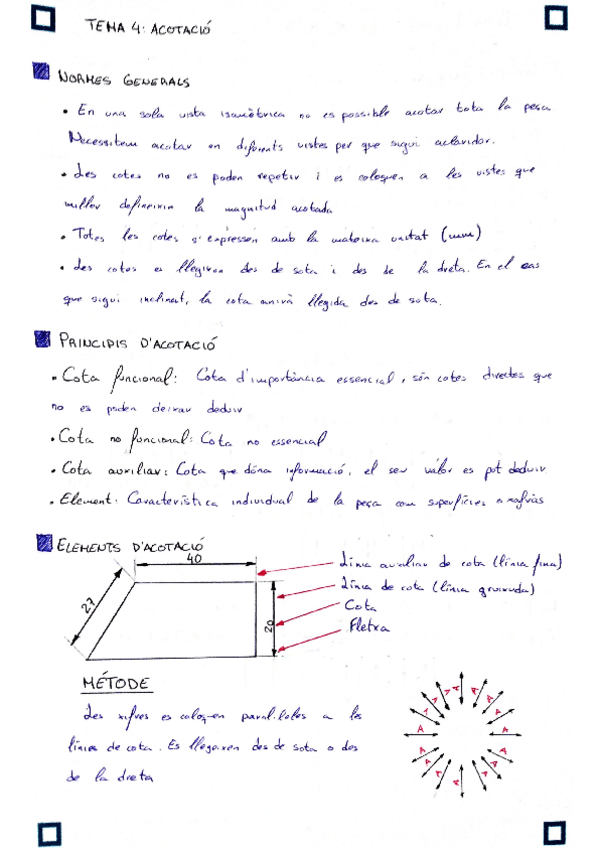 TEMA 4: ACOTACIÓ
NORMES GENERALS
• En una sola vista isomètrica no es possible acotar tota la peça
Necessitem acotar en diferents vistes per que sigui aclaridor.
• Les cotes no es poden repetir i es coloquen a les vistes que
millor defineixin la magnitud acotada
• Totes les cotes s'expressen amb la mateixa unitat (mm)
• Les cotes es llegiran des de sota i des de la dreta. En el cas
que sigui inclinat, la cota anirà llegida des de sota.
PRINCIPIS D'ACOTACIÓ
• Cota funcional: Cota d'importància essencial, són cotes directes que
no es poden deixar deduir
• Cota no funcional: Cota no essencial
• Cota auxiliar: Cota que dóna informació, el seu valor es pot deduir
• Element: Característica individual de la peça com superfícies o
ELEMENTS D'ACOTACIÓ
40
Línia auxiliar de cota (línia fina)
27
Línia de cota (línia gruixuda)
20
Cota
Fletxa
MÉTODE
Les xifres es coloquen paral·leles a les
línies de cota. Es llegeixen des de sota o des
de la dreta
A A A A A A A A A A A A A A